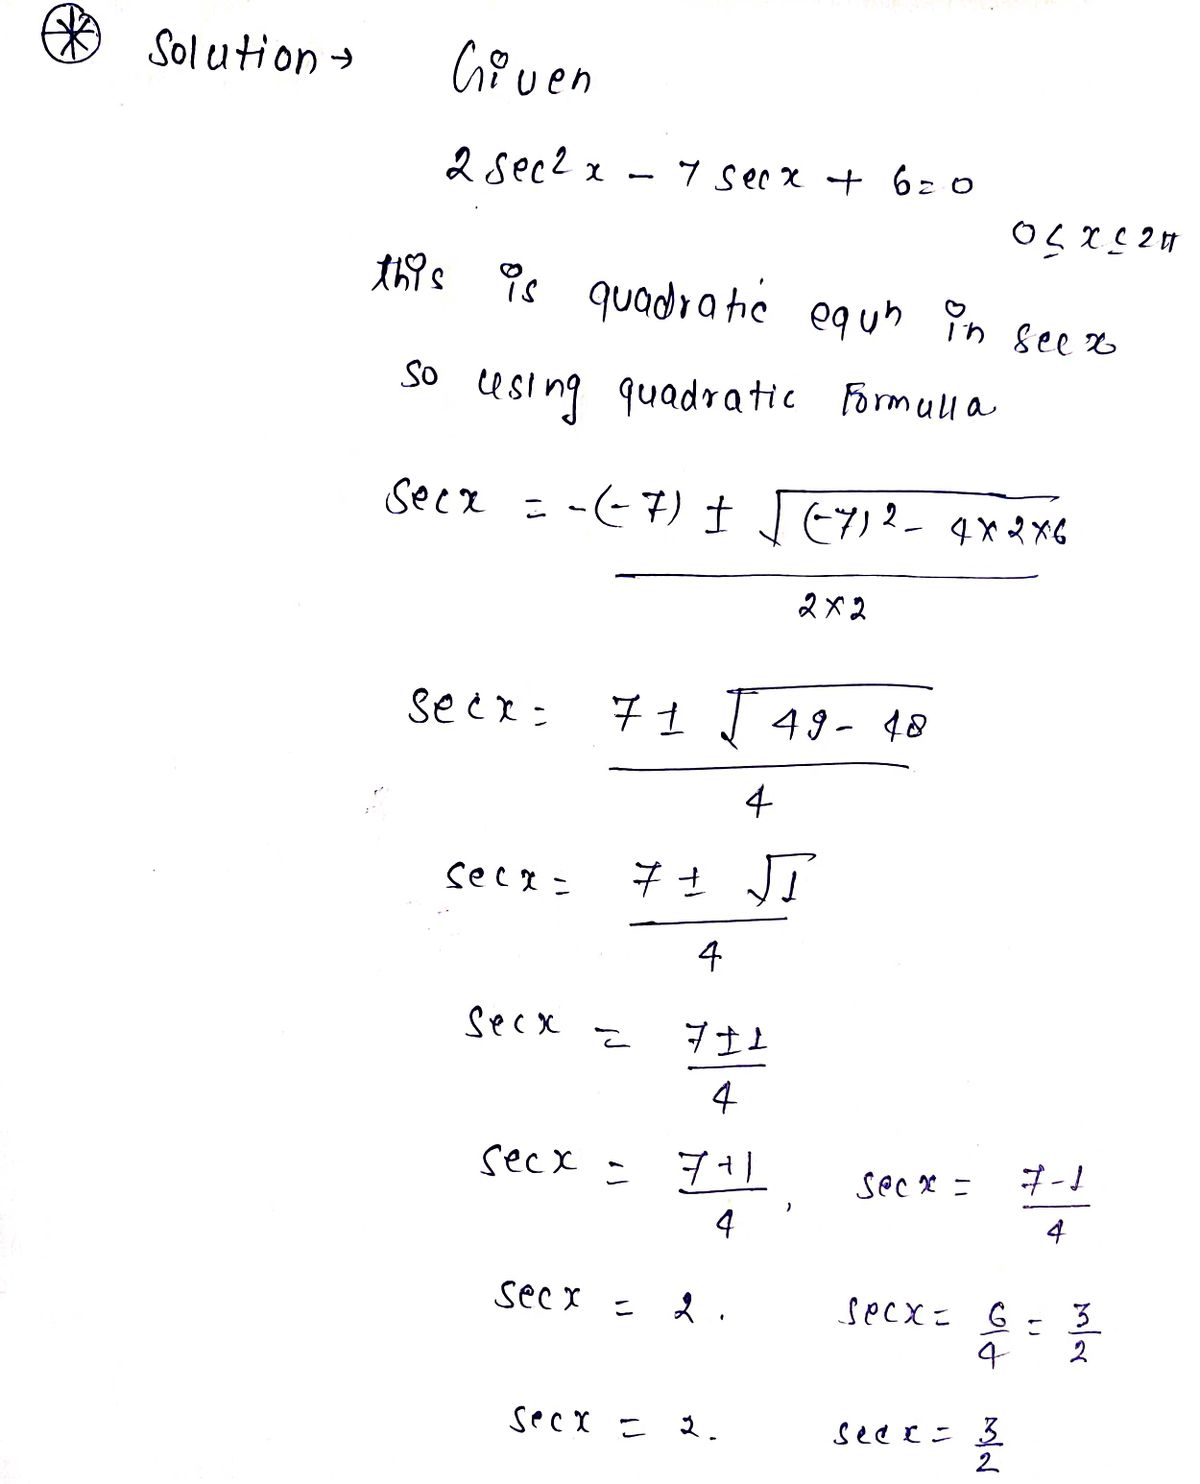 Solution → Given
2 sec² x - 7 sec x + 6 = 0
0 ≤ x ≤ 2π
this is quadratic equn in sec x
so using quadratic Formulla
sec x = -(-7) ± √(-7)² - 4×2×6
2×2
sec x = 7 ± √49 - 48
4
sec x = 7 ± √1
4
sec x = 7±1
4
sec x = 7+1 , sec x = 7-1
4 4
sec x = 2 . sec x = 6/4 = 3/2
sec x = 2. sec x = 3/2